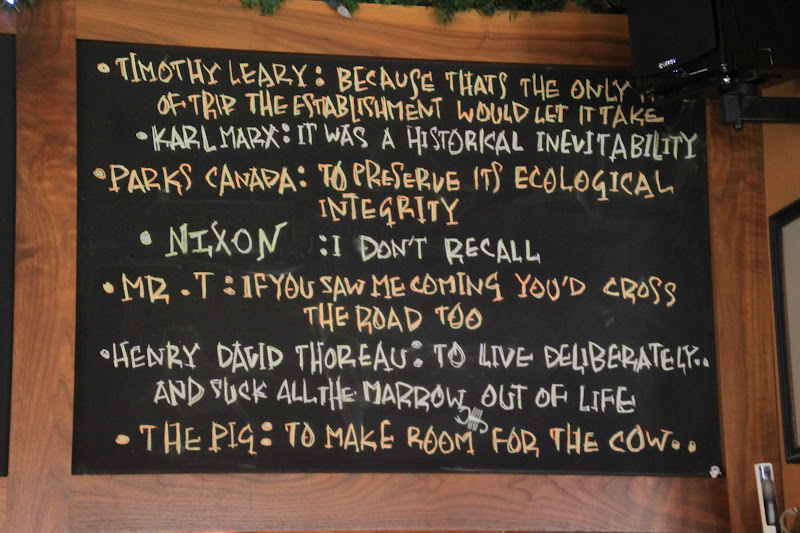 • TIMOTHY LEARY: BECAUSE THATS THE ONLY
OF TRIP THE ESTABLISHMENT WOULD LET IT TAKE
• KARL MARX: IT WAS A HISTORICAL INEVITABILITY
• PARKS CANADA: TO PRESERVE ITS ECOLOGICAL
INTEGRITY
• NIXON : I DON'T RECALL
• MR. T: IF YOU SAW ME COMING YOU'D CROSS
THE ROAD TOO
• HENRY DAVID THOREAU: TO LIVE DELIBERATELY..
AND SUCK ALL THE MARROW OUT OF LIFE
• THE PIG: TO MAKE ROOM FOR THE COW..